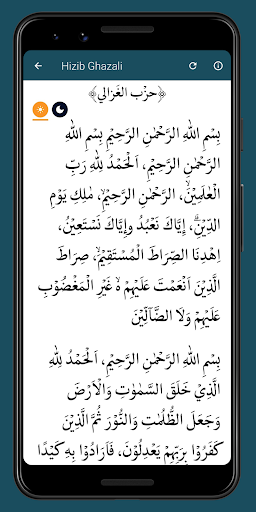 Hizib Ghazali
﴿حزْب الغَزالي﴾
بِسْمِ اللهِ الرَّحْمٰنِ الرَّحِيْمِ بِسْمِ اللهِ
الرَّحْمٰنِ الرَّحِيْمِ، اَلْحَمْدُ لِلّٰهِ رَبِّ
الْعٰلَمِيْنَۙ، الرَّحْمٰنِ الرَّحِيْمِۙ، مٰلِكِ يَوْمِ
الدِّيْنِۗ، إِيَّاكَ نَعْبُدُ وإِيَّاكَ نَسْتَعِيْنُۗ،
اِهْدِنَا الصِّرَاطَ الْمُسْتَقِيْمَۙ، صِرَاطَ
الَّذِيْنَ اَنْعَمْتَ عَلَيْهِمْ ەۙ غَيْرِ الْمَغْضُوْبِ
عَلَيْهِمْ وَلَا الضَّاۤلِّيْنَ
بِسْمِ اللهِ الرَّحْمٰنِ الرَّحِيْمِ، اَلْحَمْدُ لِلّٰهِ
الَّذِيْ خَلَقَ السَّمٰوٰتِ وَالْاَرْضَ
وَجَعَلَ الظُّلُمٰتِ وَالنُّوْرَ ثُمَّ الَّذِيْنَ
كَفَرُوْا بِرَبِّهِمْ يَعْدِلُوْنَ، فَاَرَادُوْا بِهِ كَيْدًا